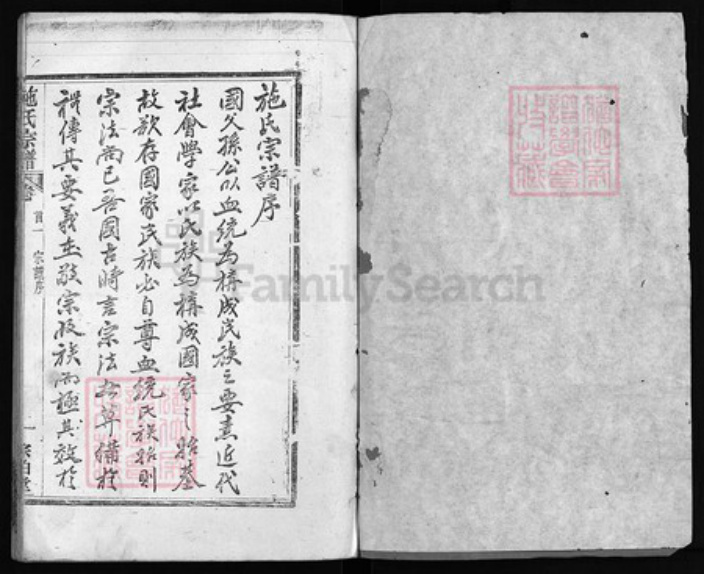 施氏宗譜序
國父孫公以血統為構成民族之要素近代
社會學家以氏族為構成國家之始基
故欲存國家民族必自尊血統氏族始則
宗法而已吾國古時言宗法者莫備於
禮傳其要義在敬宗收族而極其效於
施氏宗譜
首一 宗譜序
一
FamilySearch